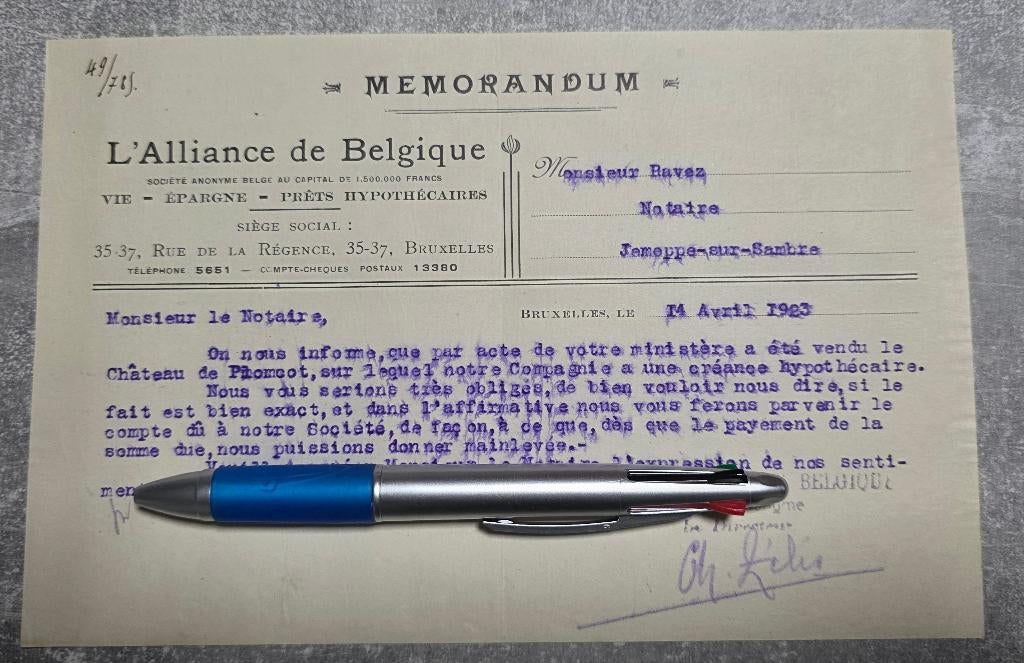 49/785.
MEMORANDUM
L'Alliance de Belgique
SOCIÉTÉ ANONYME BELGE AU CAPITAL DE 1.500.000 FRANCS
VIE - ÉPARGNE - PRÊTS HYPOTHÉCAIRES
SIÈGE SOCIAL :
35-37, RUE DE LA RÉGENCE, 35-37, BRUXELLES
TÉLÉPHONE 5651 — COMPTE-CHEQUES POSTAUX 13380
Monsieur Ravez
Notaire
Jemeppe-sur-Sambre
BRUXELLES, LE 14 Avril 1923
Monsieur le Notaire,
On nous informe,que par acte de votre ministère a été vendu le
Château de Phomcot,sur lequel notre Compagnie a une créance hypothécaire.
Nous vous serions très obligés,de bien vouloir nous dire,si le
fait est bien exact,et dans l'affirmative nous vous ferons parvenir le
compte dû à notre Société,de façon,à ce que,dès que le payement de la
somme due,nous puissions donner mainlevée.-
Monsieur le Notaire l'expression de nos senti-
men
BELGIQUE
Le Directeur
Ch.